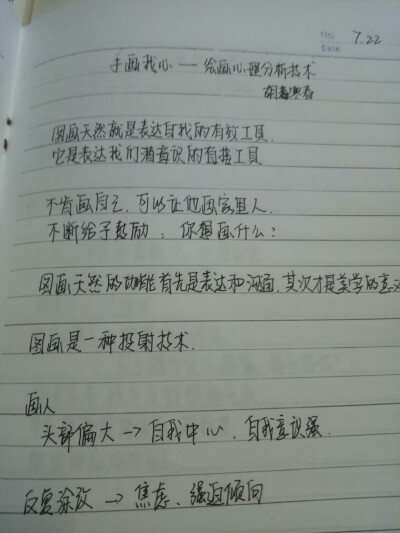 No.
Date
7.22
手画我心——绘画心理分析技术
图画天然就是表达自我的有效工具
它是表达我们潜意识的直接工具
不肯画自己,可以让他画家里人.
不断给予鼓励:你想画什么?
图画天然的功能首先是表达和沟通,其次才是美学的意义
图画是一种投射技术.
画人
头部偏大→自我中心、自我意识强.
反复涂改→焦虑、强迫倾向